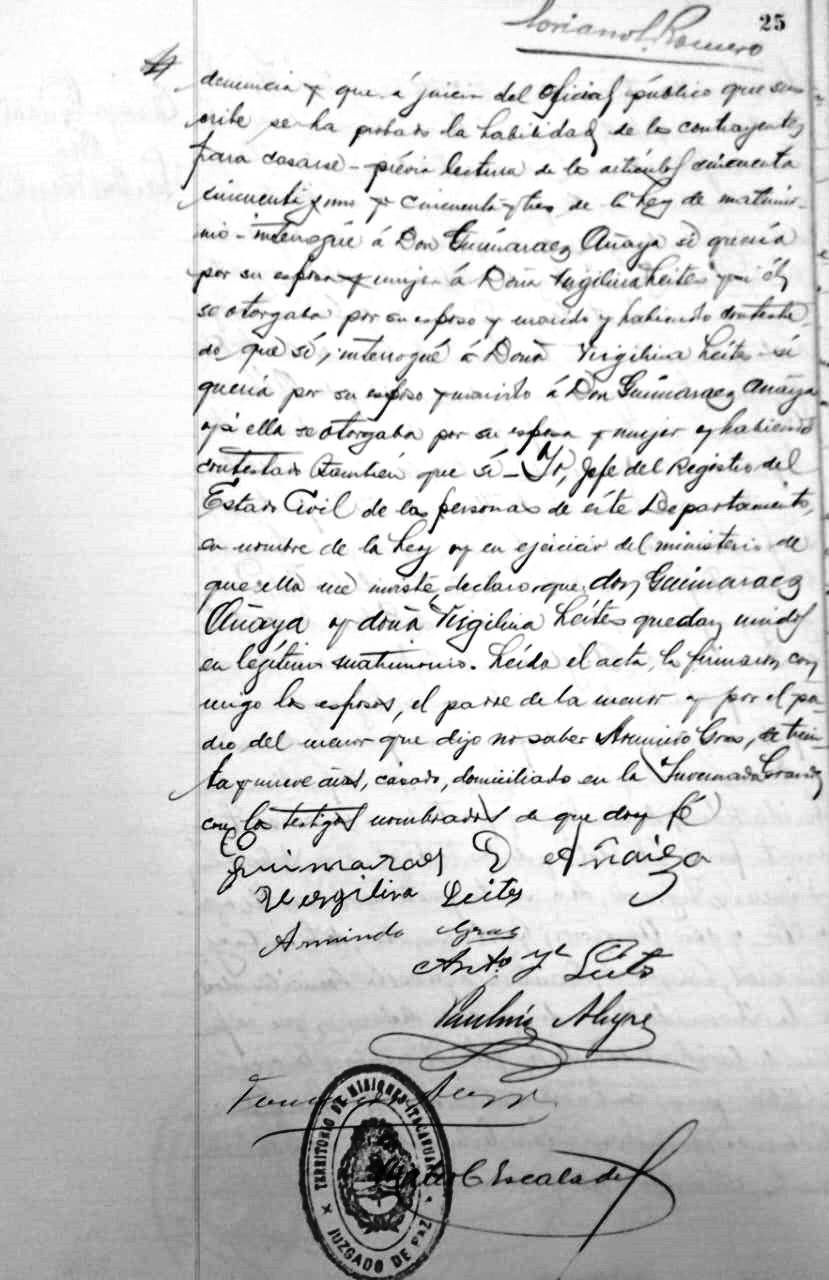 25
Soriano L. Romero
denuncia y que á juicio del Oficial público que sus
cribe se ha probado la habilidad de los contrayentes
para casarse - prévia lectura de los artículos cincuenta
cincuenta y uno y cincuenta y tres de la Ley de matrimo-
nio - interrogué á Don Guimaraez Añaya si quería
por su esposa y mujer á Doña Virgilina Leites y si él
se otorgaba por su esposo y marido y habiendo contesta
do que sí, interrogué á Doña Virgilina Leites si
quería por su esposo y marido á Don Guimaraez Añaya
y si ella se otorgaba por su esposa y mujer y habiendo
contestado también que sí - Yo, Jefe del Registro del
Estado Civil de las personas de este Departamento,
en nombre de la Ley y en ejercicio del ministerio de
que ella me inviste, declaro que don Guimaraez
Añaya y doña Virgilina Leites quedan unidos
en legítimo matrimonio. Leída el acta, la firmaron con
migo los esposos, el padre de la menor y por el pa
dre del menor que dijo no saber Arminio Gras, de trein
ta y nueve años, casado, domiciliado en la Invernada Grande
con los testigos nombrados de que doy fé
Guimaraes D Añaiza
Vergilina Leites
Armindo Gras
Anto Leite
Paulino Alegre
Escalada
TERRITORIO DE MISIONES ITACARUARÉ
JUZGADO DE PAZ